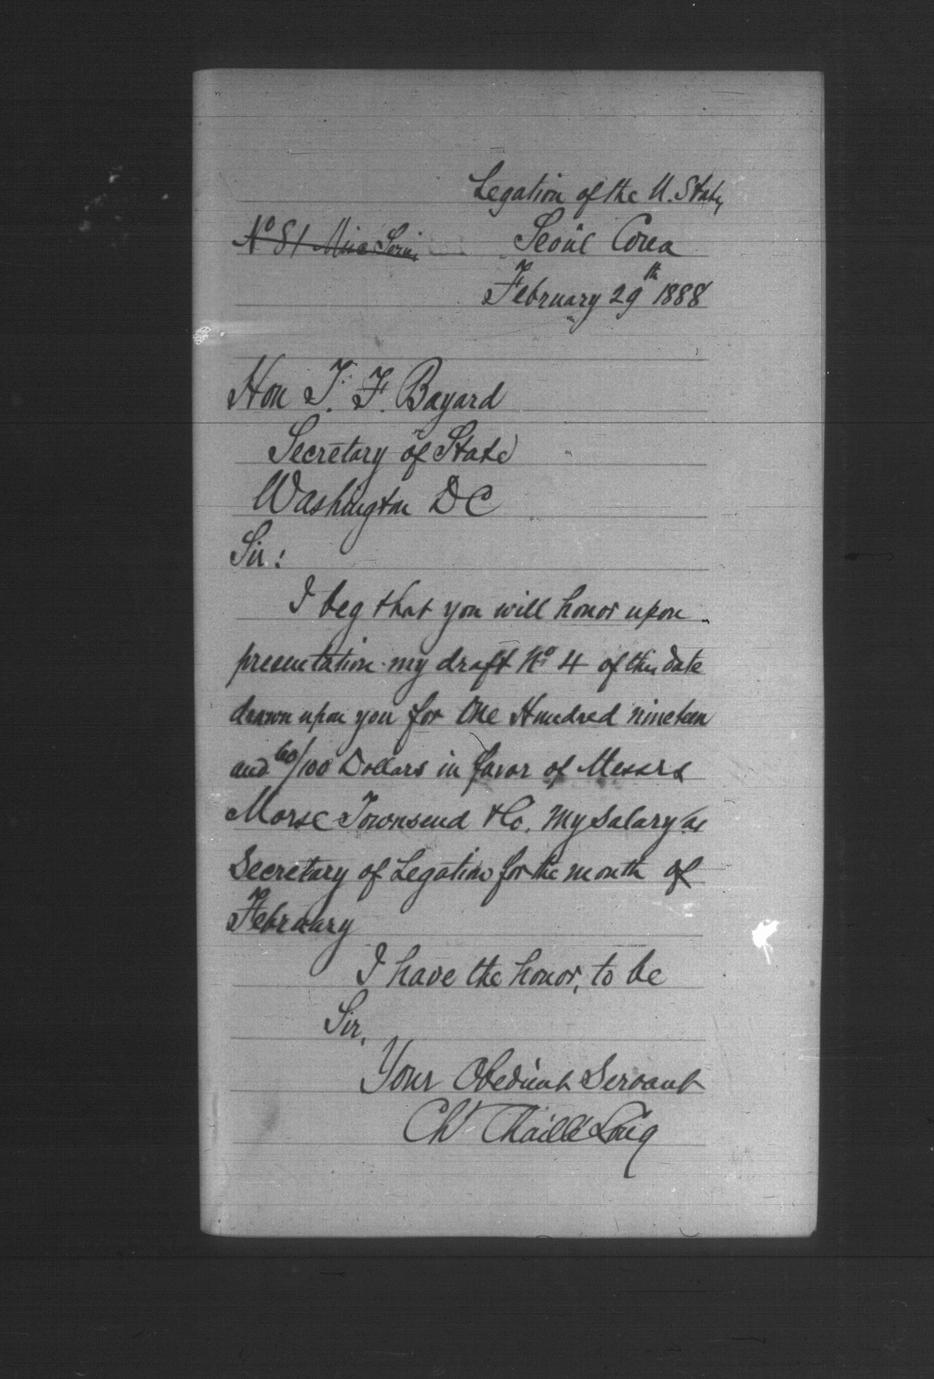 Legation of the U. States
No 81 Misc Series
Seoul Corea
February 29th 1888
Hon T. F. Bayard
Secretary of State
Washington D C
Sir:
I beg that you will honor upon
presentation my draft No 4 of this date
drawn upon you for One Hundred nineteen
and 60/100 Dollars in favor of Messrs
Morse Townsend & Co. My salary as
Secretary of Legation for the month of
February
I have the honor, to be
Sir,
Your Obedient Servant
Ch Chaillé Long